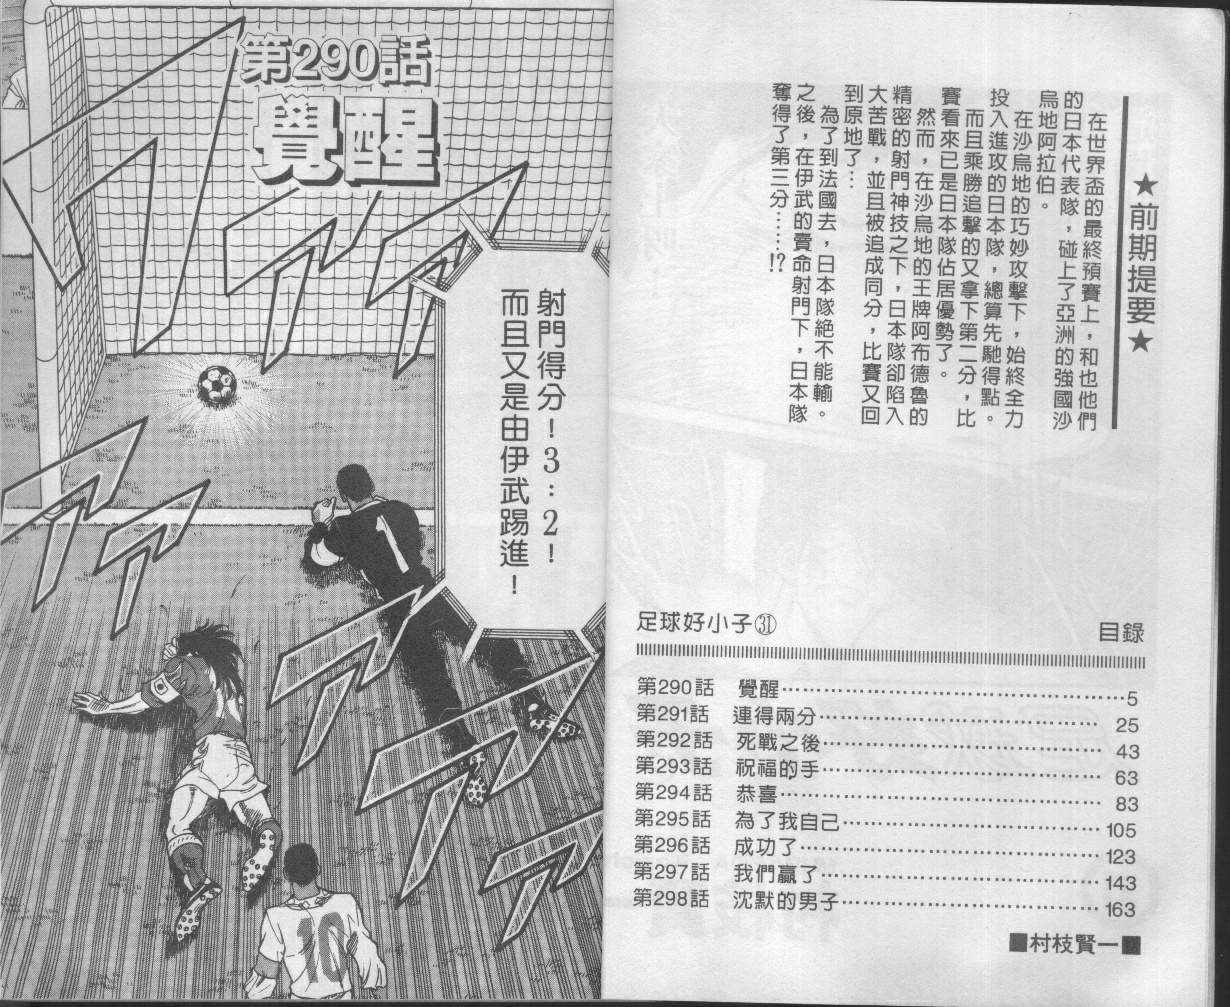 ★前期提要★
在世界盃的最終預賽上，和也他們
的日本代表隊，碰上了亞洲的強國沙
烏地阿拉伯。
在沙烏地的巧妙攻擊下，始終全力
投入進攻的日本隊，總算先馳得點。
而且乘勝追擊的又拿下第二分，比
賽看來已是日本隊佔居優勢了。
然而，在沙烏地的王牌阿布德魯的
精密的射門神技之下，日本隊卻陷入
大苦戰，並且被追成同分，比賽又回
到原地了…
為了到法國去，日本隊絕不能輸。
之後，在伊武的賣命射門下，日本隊
奪得了第三分……!?
足球好小子㉛ 目錄
第290話 覺醒……………………………………5
第291話 連得兩分……………………………… 25
第292話 死戰之後……………………………… 43
第293話 祝福的手……………………………… 63
第294話 恭喜…………………………………… 83
第295話 為了我自己…………………………… 105
第296話 成功了………………………………… 123
第297話 我們贏了……………………………… 143
第298話 沈默的男子…………………………… 163
■村枝賢一■
第290話
覺醒
射門得分！3：2！
而且又是由伊武踢進！
1
10